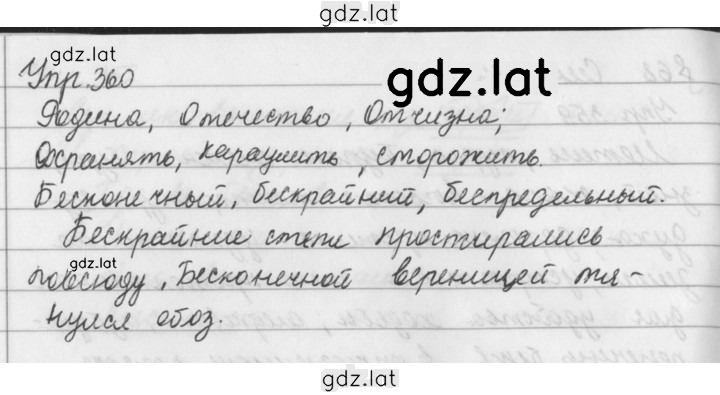 gdz.lat
gdz.lat
Упр. 360
gdz.lat
Родина, Отечество, Отчизна;
Охранять, караулить, сторожить.
Бесконечный, бескрайний, беспредельный.
Бескрайние степи простирались
gdz.lat
повсюду. Бесконечной вереницей тя-
нулся обоз.
gdz.lat